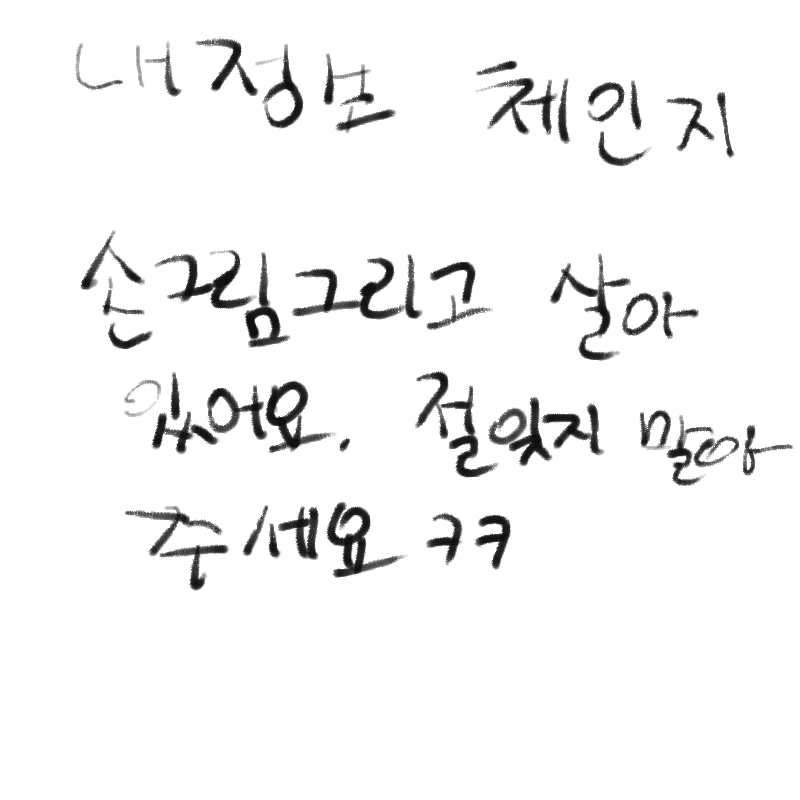 내정보 체인지
손그림그리고 살아
있어요. 절잊지 말아
주세요 ㅋㅋ